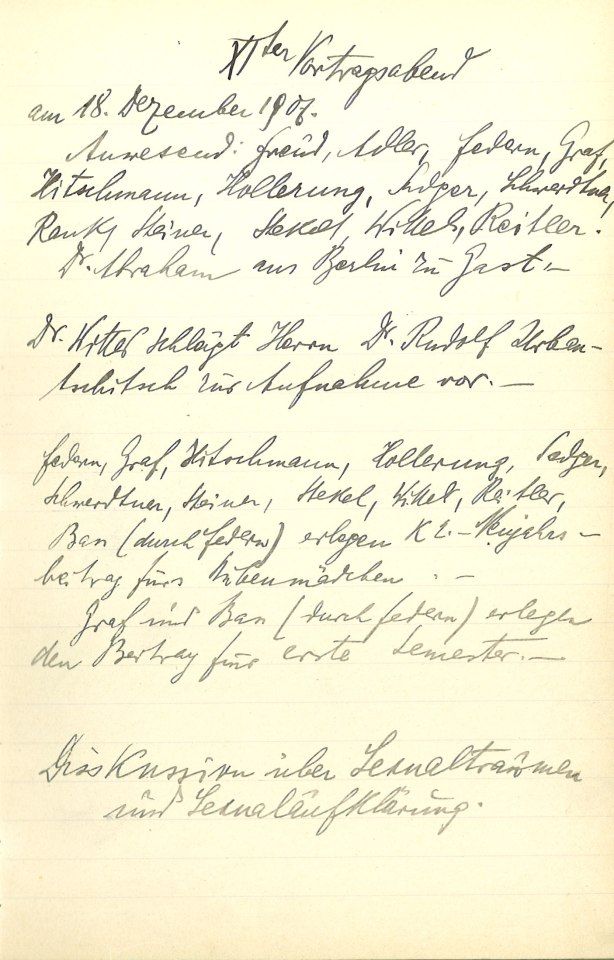 XIter Vortragsabend
am 18. Dezember 1907.
Anwesend: Freud, Adler, Federn, Graf,
Hitschmann, Hollerung, Sadger, Schwerdtner,
Rank, Steiner, Stekel, Wittels, Reitler.
Dr. Abraham aus Berlin zu Gast.—
Dr. Wittels schlägt Herrn Dr. Rudolf Urban-
tschitsch zur Aufnahme vor.—
Federn, Graf, Hitschmann, Hollerung, Sadger,
Schwerdtner, Steiner, Stekel, Wittels, Reitler,
Bass (durch Federn) erlegen K 2.— Neujahrs-
beitrag fürs Stubenmädchen.—
Graf und Bass (durch Federn) erlegen
den Beitrag fürs erste Semester.—
Disskussion über Sexualtraumen
und Sexualaufklärung.